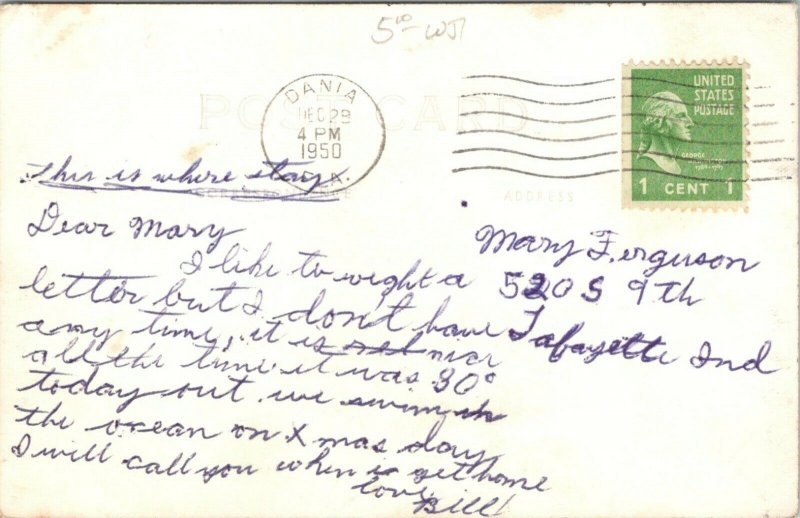 5¹⁰ WJ
DANIA
DEC 29
4 PM
1950
FLA.
UNITED
STATES
POSTAGE
GEORGE
WASHINGTON
1789-1797
1 CENT 1
POST CARD
CORRESPONDENCE
ADDRESS
This is where stay x.
Dear Mary
I like to wight a
letter but I don't have
any time, it is nice
all the time. it was 80°
today out. we swim in
the ocean on Xmas day,
I will call you when is get home
love,
Bill
Mary Ferguson
520 S 9th
Lafayette Ind